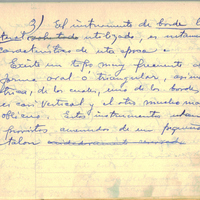 3) El instrumento de borde l
teral utilizado, es instrum
característico de esta época
Existe un tipo muy frecuente d
forma oval ó triangular, asimé
trica, de los cuales, uno de los bordes
es casi vertical y el otro mucho mas
oblicuo. Estos instrumentos estan
provistos, ademas de un pequeño
talon